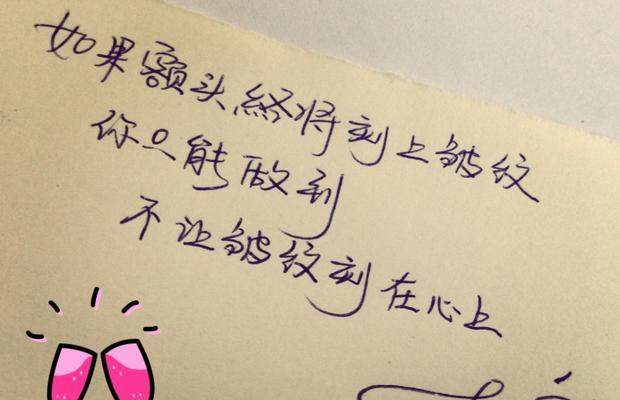 如果额头终将刻上皱纹
你只能做到
不让皱纹刻在心上